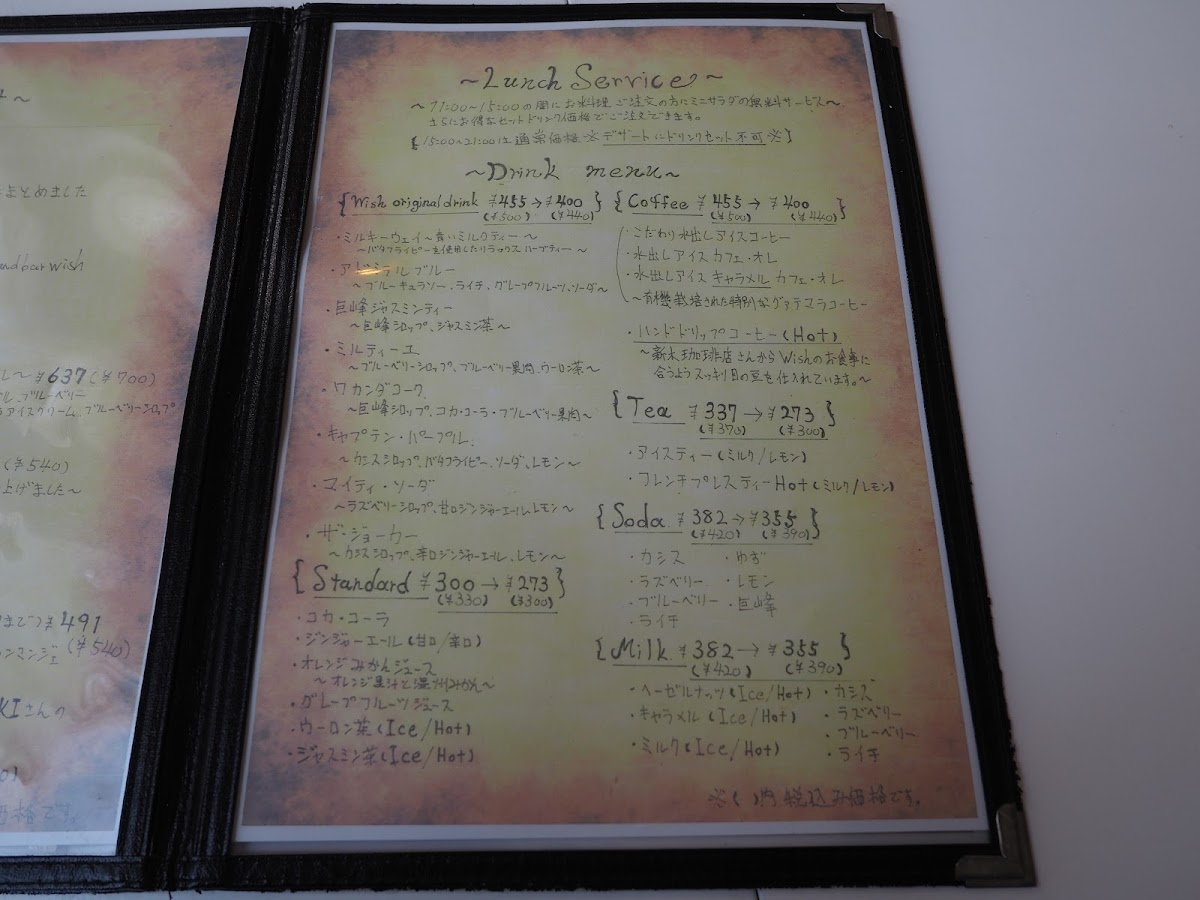 まとめました
and bar wish
¥637(¥700)
ル、ブルーベリー
アイスクリーム、ブルーベリーシロップ
(¥540)
上げました～
¥491
(¥540)
KIさんの
価格です。
～Lunch Service～
～11:00～15:00の間にお料理ご注文の方にミニサラダの無料サービス～
さらにお得なセットドリンク価格でご注文できます。
{15:00~21:00は通常価格 ※デザートにドリンクセット不可※}
～Drink menu～
{Wish original drink ¥455→¥400}
(¥500) (¥440)
・ミルキーウェイ～青いミルクティー～
～バタフライピーを使用したリラックスハーブティー～
・アドミラルブルー
～ブルーキュラソー、ライチ、グレープフルーツ、ソーダ～
・巨峰ジャスミンティー
～巨峰シロップ、ジャスミン茶～
・ミルティーユ
～ブルーベリーシロップ、ブルーベリー果肉、ウーロン茶～
・ワカンダコーク
～巨峰シロップ、コカ・コーラ・ブルーベリー果肉～
・キャプテン・パープル
～カシスシロップ、バタフライピー、ソーダ、レモン～
・マイティ・ソーダ
～ラズベリーシロップ、甘口ジンジャーエール、レモン～
・ザ・ジョーカー
～カシスシロップ、辛口ジンジャーエール、レモン～
{Standard ¥300→¥273}
(¥330) (¥300)
・コカ・コーラ
・ジンジャーエール(甘口/辛口)
・オレンジみかんジュース
～オレンジ果汁と温州みかん～
・グレープフルーツジュース
・ウーロン茶(Ice/Hot)
・ジャスミン茶(Ice/Hot)
{Coffee ¥455→¥400}
(¥500) (¥440)
・こだわり水出しアイスコーヒー
・水出しアイスカフェ・オレ
・水出しアイスキャラメルカフェ・オレ
～有機栽培された特別なグァテマラコーヒー
・ハンドドリップコーヒー(Hot)
～新太珈琲店さんからWishのお食事に
合うようスッキリ目の豆を仕入れています。～
{Tea ¥337→¥273}
(¥370) (¥300)
・アイスティー(ミルク/レモン)
・フレンチプレスティーHot(ミルク/レモン)
{Soda ¥382→¥355}
(¥420) (¥390)
・カシス ・ゆず
・ラズベリー ・レモン
・ブルーベリー ・巨峰
・ライチ
{Milk ¥382→¥355}
(¥420) (¥390)
・ヘーゼルナッツ(Ice/Hot) ・カシス
・キャラメル(Ice/Hot) ・ラズベリー
・ブルーベリー
・ミルク(Ice/Hot) ・ライチ
※( )内税込み価格です。